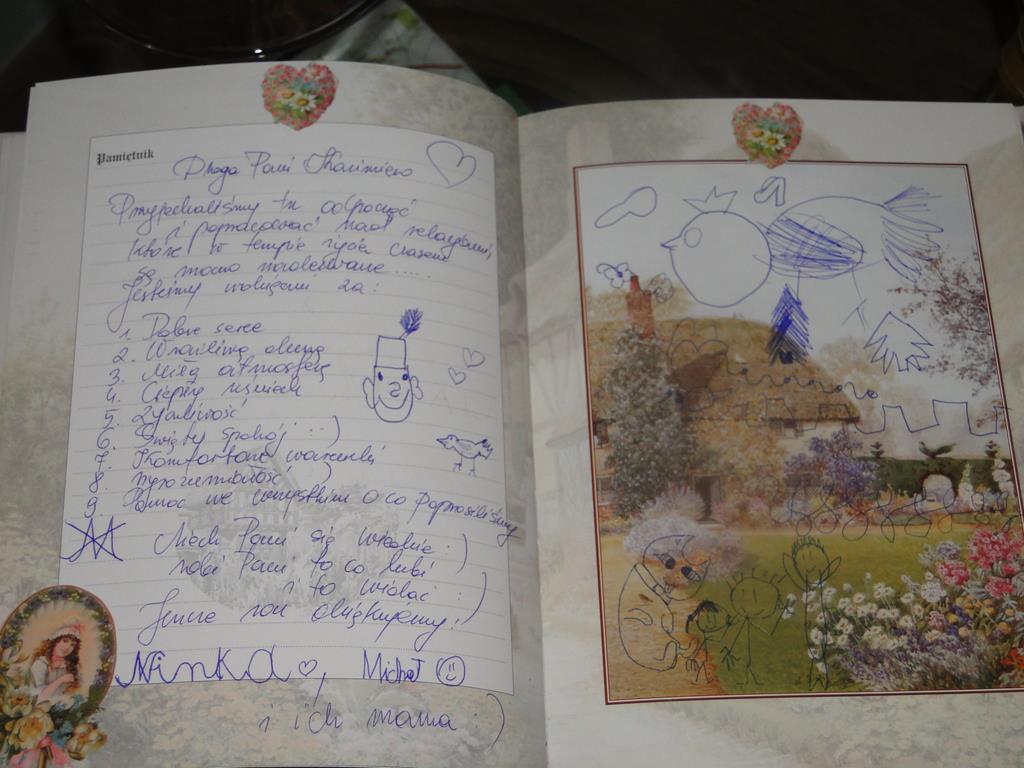 Pamiętnik
Droga Pani Kazimiero
Przyjechaliśmy tu odpocząć
i popracować nad relacjami,
które w tempie życia czasem
są mocno nadszarpane.....
Jesteśmy wdzięczni za:
1. Dobre serce
2. Wrażliwą duszę
3. Miłą atmosferę
4. Ciepły uśmiech
5. Życzliwość
6. Święty spokój :)
7. Komfortowe warunki
8. Wyrozumiałość
9. Pomoc we wszystkim o co poprosiliśmy
Niech Pani się wiedzie :)
robi Pani to co lubi
i to widać :)
Jeszcze raz dziękujemy!
Ninka, Michał
i ich mama :)